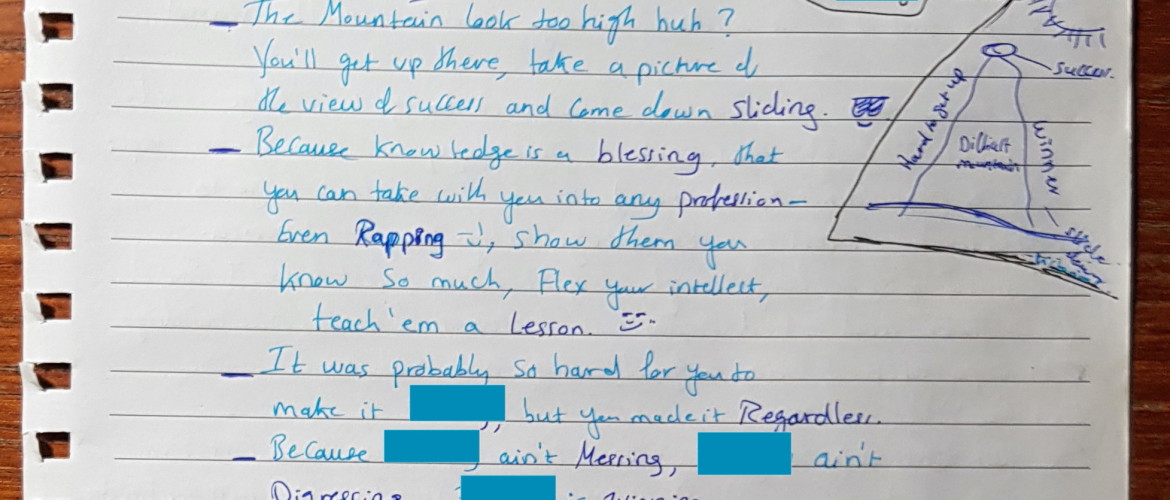 – The Mountain look too high huh?
You'll get up there, take a picture of
the view of success and come down sliding.
– Because knowledge is a blessing, that
you can take with you into any profession –
Even Rapping :), show them you
know so much, Flex your intellect,
teach 'em a Lesson.
– It was probably so hard for you to
make it , but you made it Regardless.
– Because ain't Messing, ain't
Digressing
success.
Hard to get up
Difficult
mountain
winner
slide
down